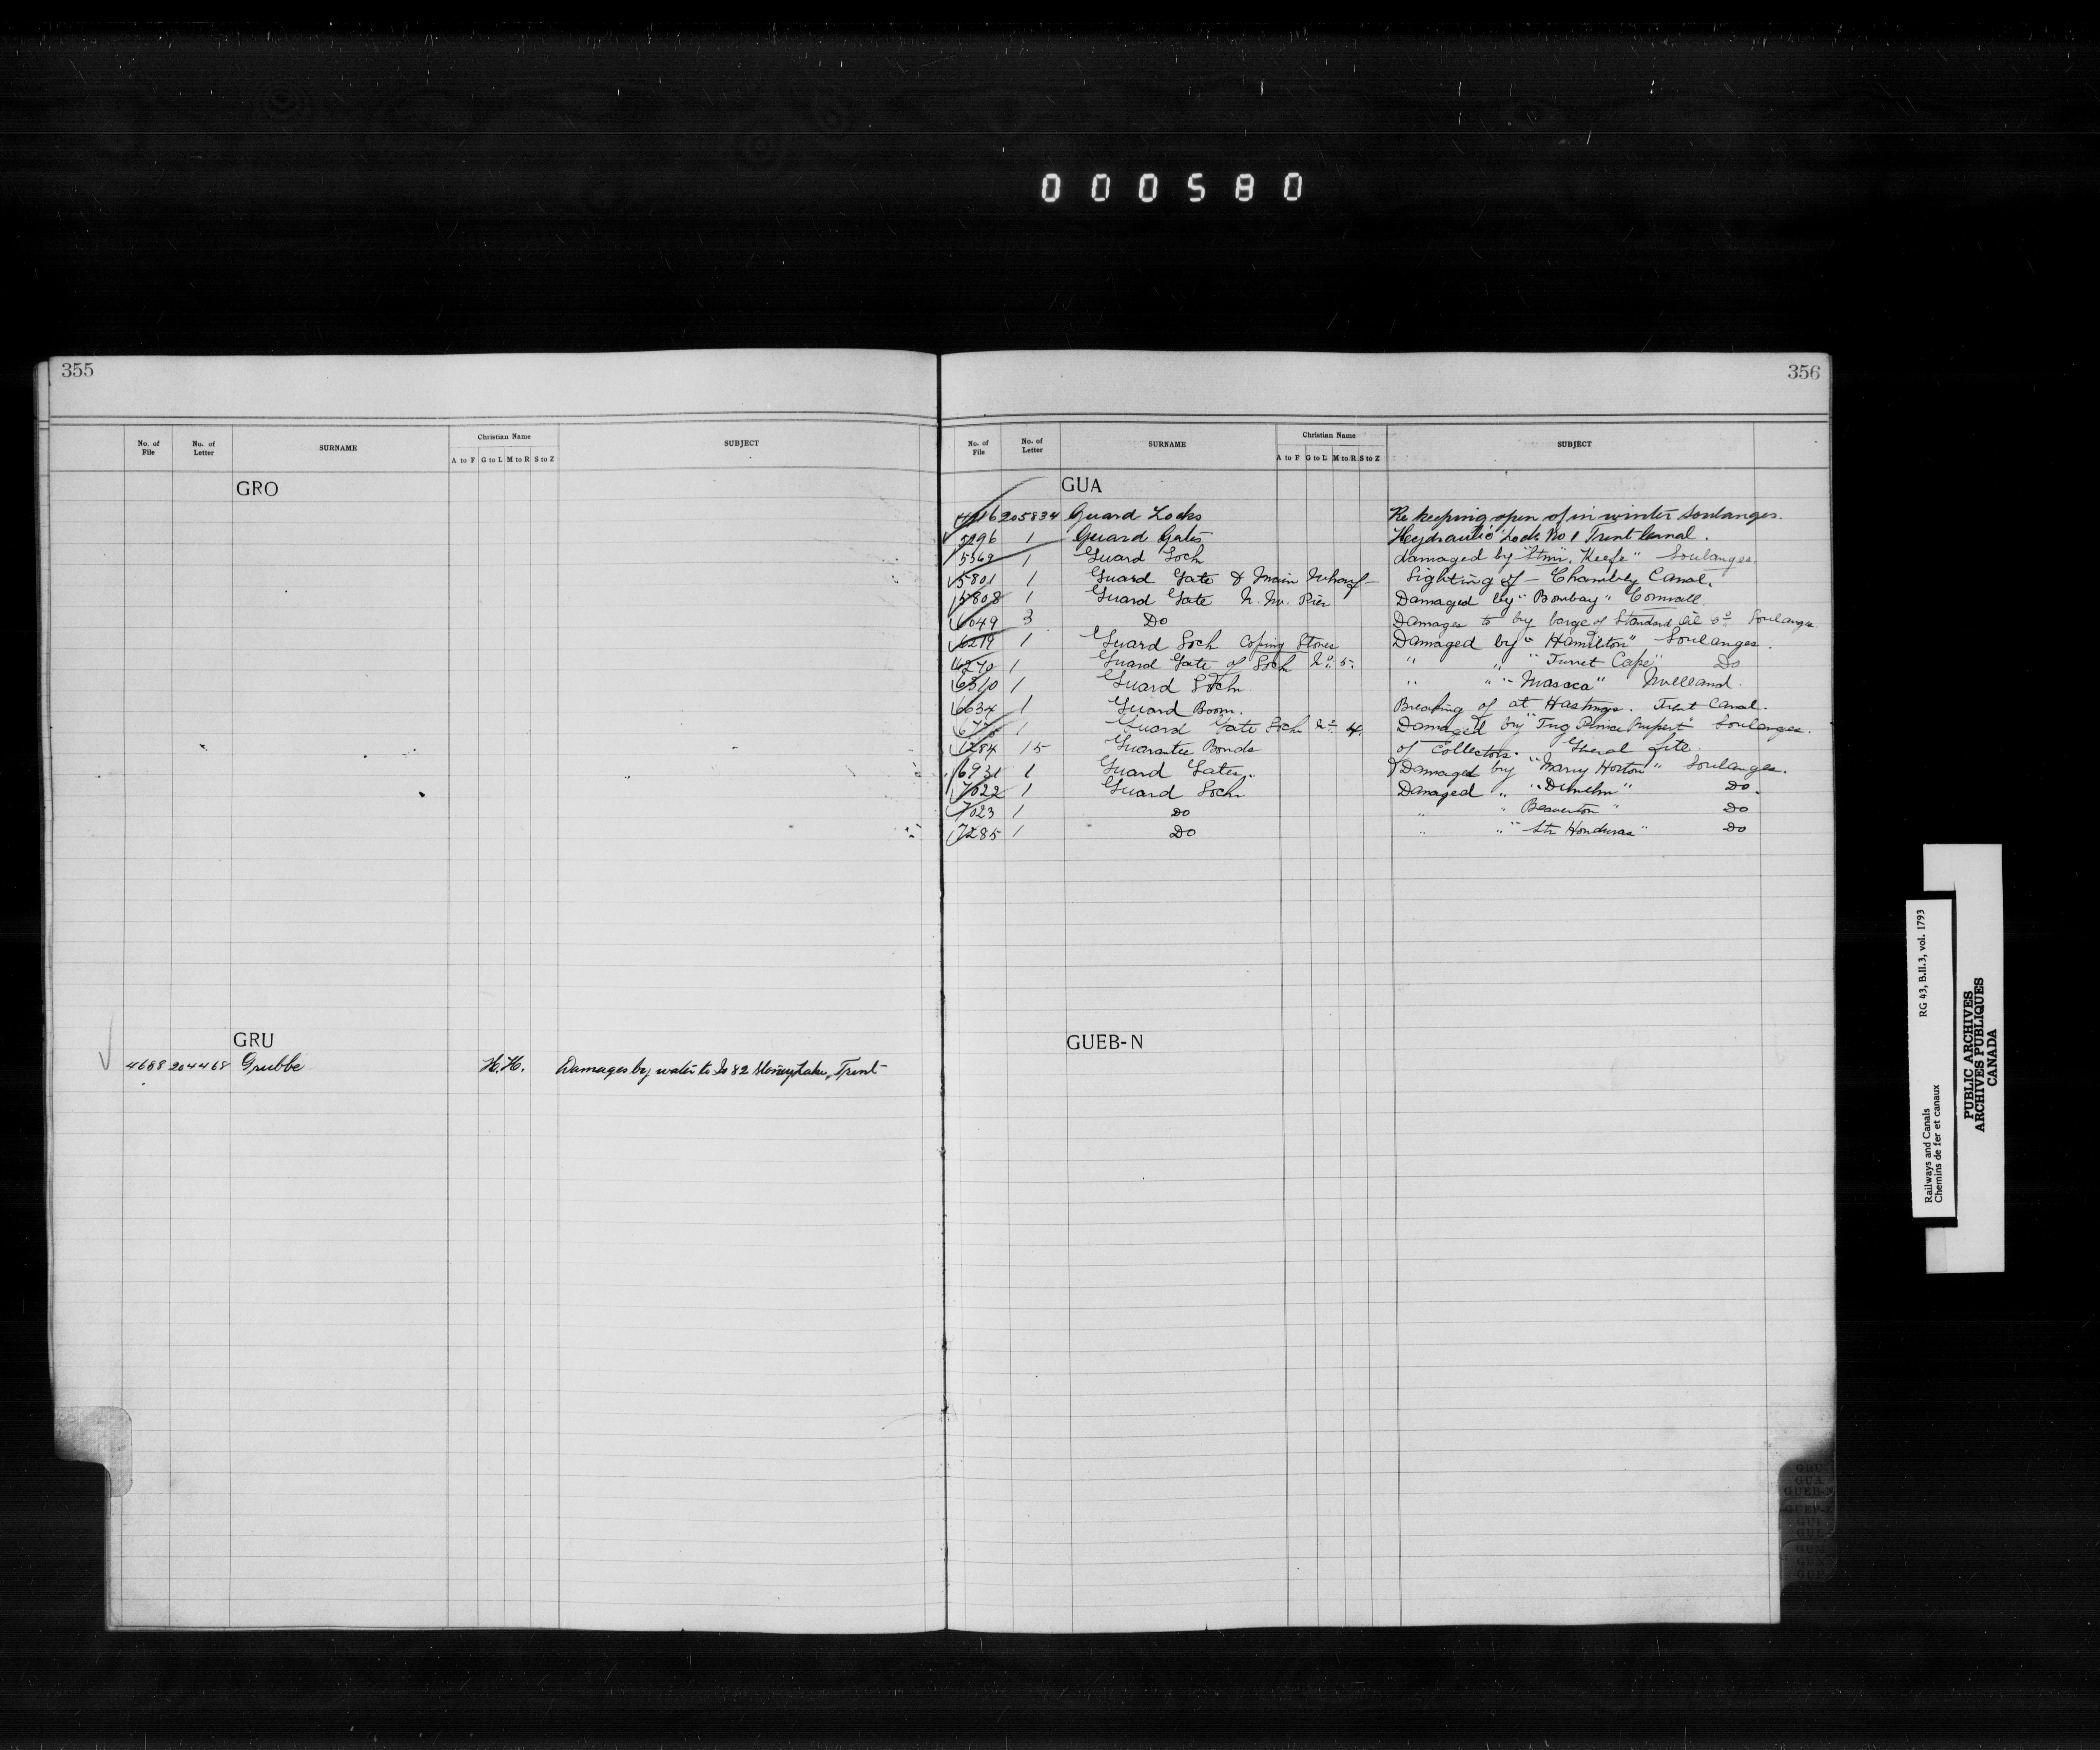 000580
355
No. of File No. of Letter SURNAME Christian Name SUBJECT
A to F G to L M to R S to Z
GRO
GRU
4688 204468 Grubbe H.H. Damages by water to Is 82 Stoney Lake, Trent
356
No. of File No. of Letter SURNAME Christian Name SUBJECT
A to F G to L M to R S to Z
GUA
205834 Guard Locks Re keeping open of in winter Soulanges.
5296 1 Guard Gates Hydraulic Lock No 1 Trent Canal.
5369 1 Guard Lock damaged by "Stmr. Keefe" Soulanges.
5801 1 Guard Gate & Main Wharf Lighting of - Chambly Canal.
5808 1 Guard Gate N. W. Pier Damaged by "Bombay" Cornwall
6049 3 Do Damages to by barge of Standard Oil Co Soulanges
6219 1 Guard Lock Coping Stones Damaged by "Hamilton" Soulanges.
6270 1 Guard Gate of Lock No. 5. " " "Turret Cape" Do
6310 1 Guard Lock " " " Welland.
6634 1 Guard Boom. Breaking of at Hastings. Trent Canal.
1 Guard Gate Lock No. 4. Damaged by "Tug Prince Rupert" Soulanges.
1284 15 Guarantee Bonds of Collectors.
6931 1 Guard Gates. Damaged by "Mary Horton" Soulanges.
7022 1 Guard Lock Damaged " Do.
7023 1 Do " " Beaverton " Do
7285 1 Do " " "Str Honduras" Do
GUEB-N
GRU
GUA
GUEB-N
GUI
RG 43, B.II.3, vol. 1793
Railways and Canals
Chemins de fer et canaux
PUBLIC ARCHIVES
ARCHIVES PUBLIQUES
CANADA